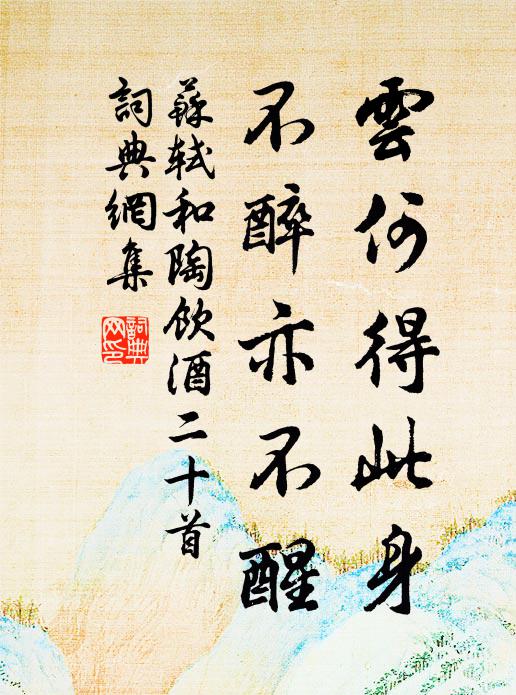 雲何得此身
不醉亦不醒
蘇軾和陶飲酒二十首
詞典網集
詞典
网印